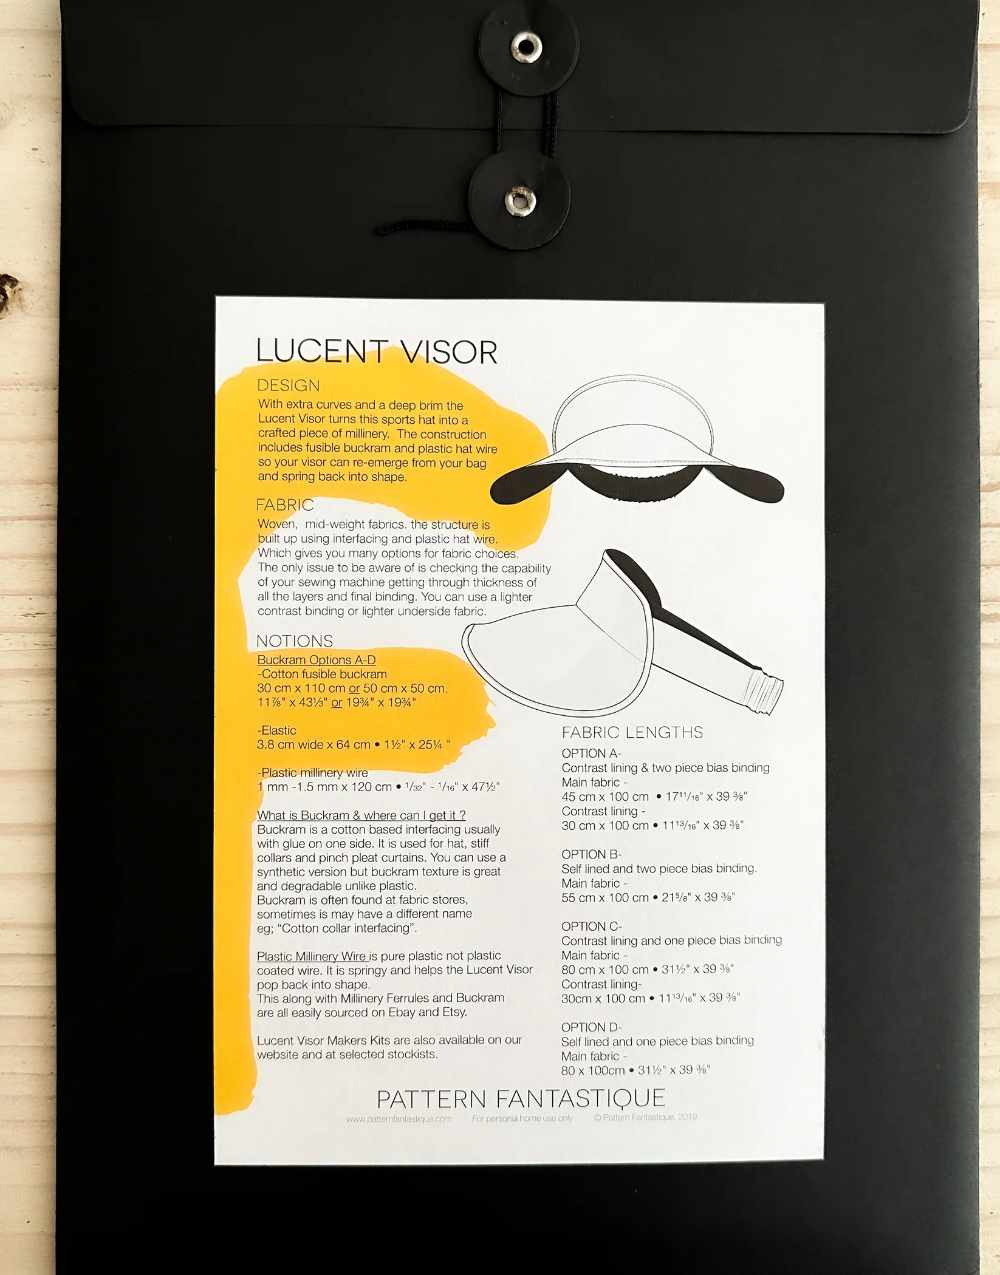 LUCENT VISOR
DESIGN
With extra curves and a deep brim the
Lucent Visor turns this sports hat into a
crafted piece of millinery. The construction
includes fusible buckram and plastic hat wire
so your visor can re-emerge from your bag
and spring back into shape.
FABRIC
Woven, mid-weight fabrics. the structure is
built up using interfacing and plastic hat wire.
Which gives you many options for fabric choices.
The only issue to be aware of is checking the capability
of your sewing machine getting through thickness of
all the layers and final binding. You can use a lighter
contrast binding or lighter underside fabric.
NOTIONS
Buckram Options A-D
-Cotton fusible buckram
30 cm x 110 cm or 50 cm x 50 cm.
11⅞" x 43⅓" or 19¾" x 19¾"
-Elastic
3.8 cm wide x 64 cm • 1½" x 25¼ "
-Plastic millinery wire
1 mm -1.5 mm x 120 cm • 1/32" - 1/16" x 47½"
What is Buckram & where can I get it ?
Buckram is a cotton based interfacing usually
with glue on one side. It is used for hat, stiff
collars and pinch pleat curtains. You can use a
synthetic version but buckram texture is great
and degradable unlike plastic.
Buckram is often found at fabric stores,
sometimes is may have a different name
eg; “Cotton collar interfacing”.
Plastic Millinery Wire is pure plastic not plastic
coated wire. It is springy and helps the Lucent Visor
pop back into shape.
This along with Millinery Ferrules and Buckram
are all easily sourced on Ebay and Etsy.
Lucent Visor Makers Kits are also available on our
website and at selected stockists.
FABRIC LENGTHS
OPTION A-
Contrast lining & two piece bias binding
Main fabric -
45 cm x 100 cm • 17 11/16" x 39 ⅜"
Contrast lining -
30 cm x 100 cm • 11 13/16" x 39 ⅜"
OPTION B-
Self lined and two piece bias binding.
Main fabric -
55 cm x 100 cm • 21⅝" x 39 ⅜"
OPTION C-
Contrast lining and one piece bias binding
Main fabric -
80 cm x 100 cm • 31½" x 39 ⅜"
Contrast lining-
30cm x 100 cm • 11 13/16" x 39 ⅜"
OPTION D-
Self lined and one piece bias binding
Main fabric -
80 x 100cm • 31½" x 39 ⅜"
PATTERN FANTASTIQUE
www.patternfantastique.com For personal home use only © Pattern Fantastique, 2019